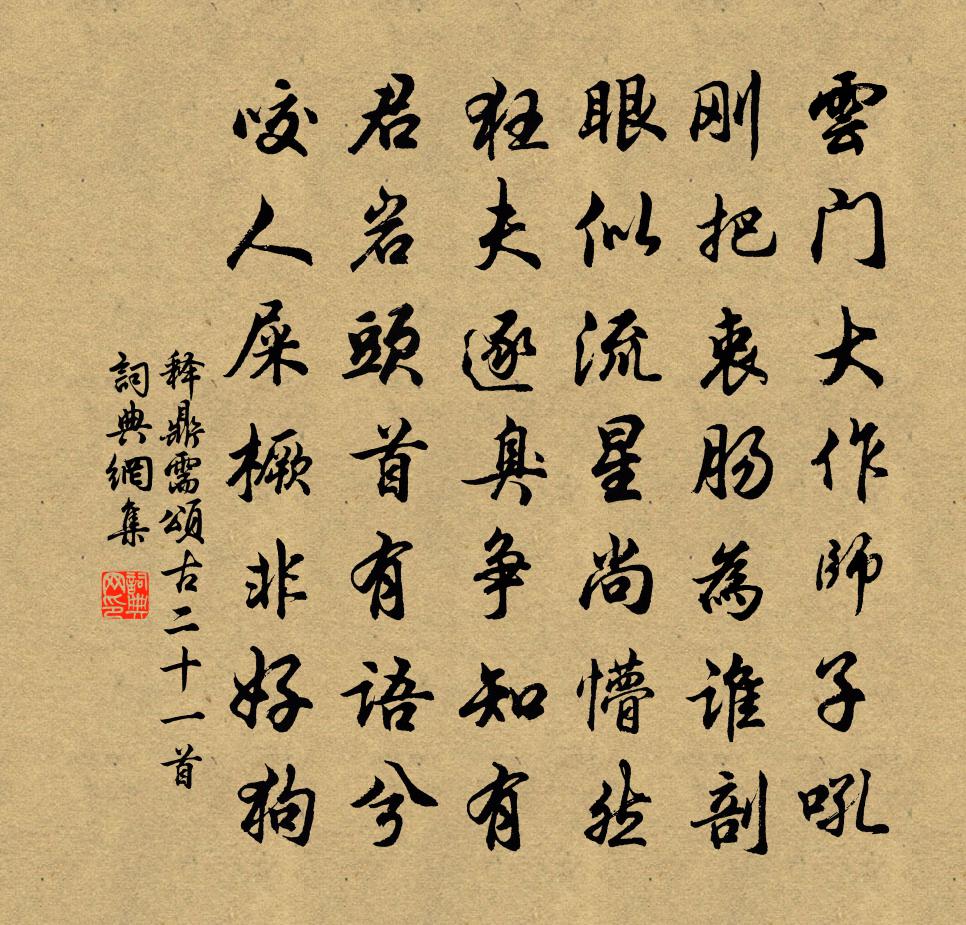 雲门大作師子吼
刚把衷肠為谁剖
眼似流星尚懵然
狂夫逐臭争知有
君岩頭首有语兮
咬人屎橛非好狗
释鼎需頌古二十一首
詞典網集
詞典网印